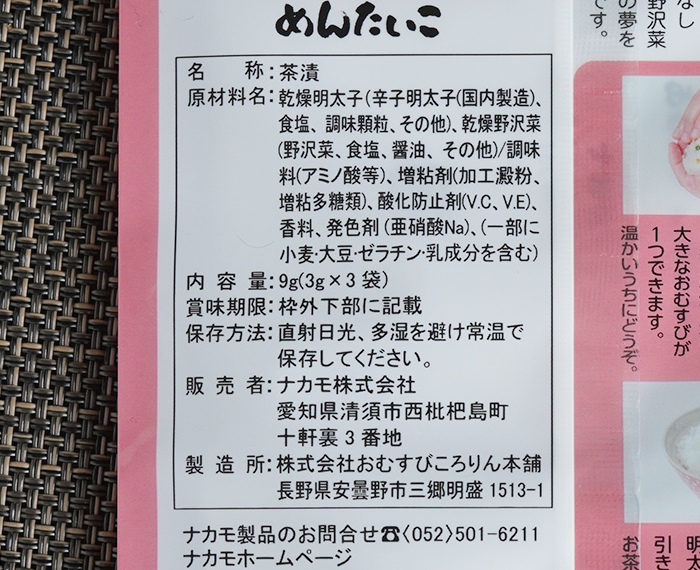 めんたいこ
名　　称：茶漬
原材料名：乾燥明太子（辛子明太子（国内製造）、
食塩、調味顆粒、その他）、乾燥野沢菜
（野沢菜、食塩、醤油、その他）/調味
料（アミノ酸等）、増粘剤（加工澱粉、
増粘多糖類）、酸化防止剤（V.C、V.E）、
香料、発色剤（亜硝酸Na）、（一部に
小麦・大豆・ゼラチン・乳成分を含む）
内 容 量：9g（3g×3袋）
賞味期限：枠外下部に記載
保存方法：直射日光、多湿を避け常温で
保存してください。
販 売 者：ナカモ株式会社
愛知県清須市西枇杷島町
十軒裏3番地
製 造 所：株式会社おむすびころりん本舗
長野県安曇野市三郷明盛1513-1
ナカモ製品のお問合せ☎〈052〉501-6211
ナカモホームページ
なし
野沢菜
の夢を
です。
大きなおむすびが
1つできます。
温かいうちにどうぞ。
明太
引き
お茶